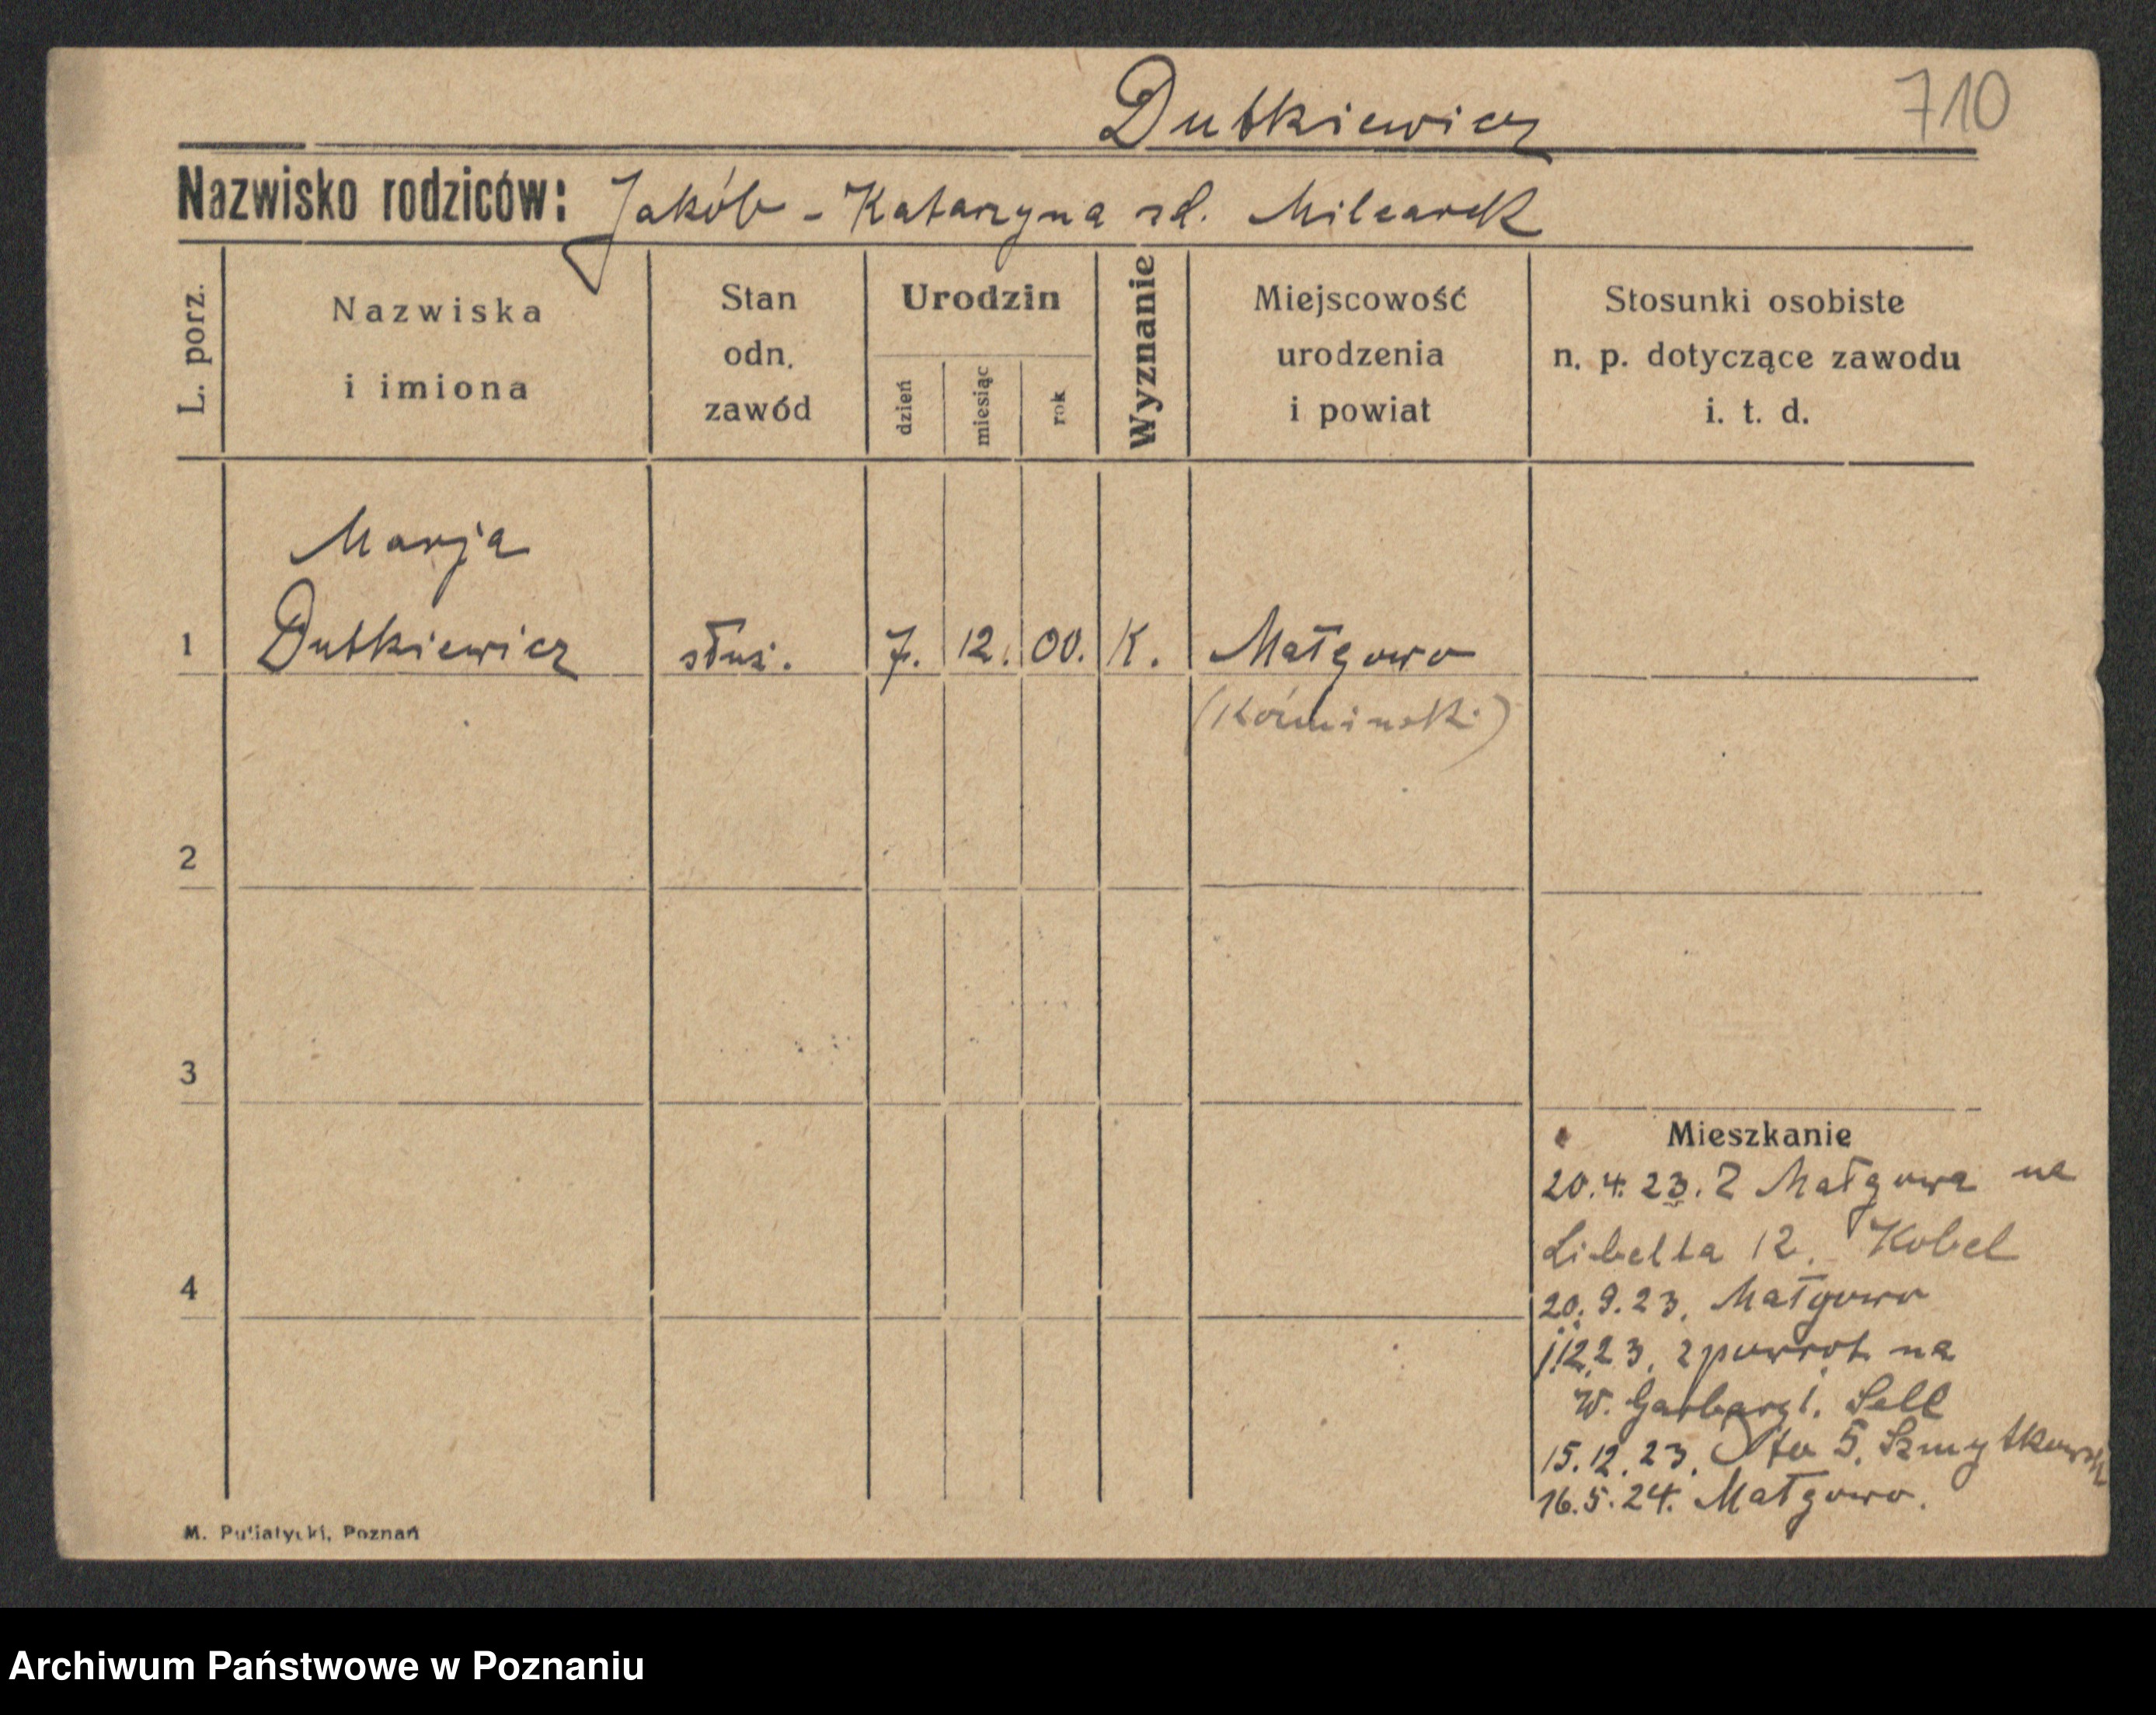 Dutkiewicz
710
Nazwisko rodziców: Jakób - Katarzyna zd. Milcarek
L. porz.
Nazwiska
i imiona
Stan
odn.
zawód
Urodzin
dzień
miesiąc
rok
Wyznanie
Miejscowość
urodzenia
i powiat
Stosunki osobiste
n. p. dotyczące zawodu
i. t. d.
Marja
1 Dutkiewicz służ. 7. 12. 00. K. Małgowo
(Koźmiński)
2
3
Mieszkanie
20.4.23. Z Małgowa na
Libelta 12. Kobel
4
20.9.23. Małgowo
1.12.23. zpowrot na
W. Garbary 1. Sell
15.12.23. 5. Szmytkowsk
16.5.24. Małgowo.
M. Putiatycki, Poznań
Archiwum Państwowe w Poznaniu